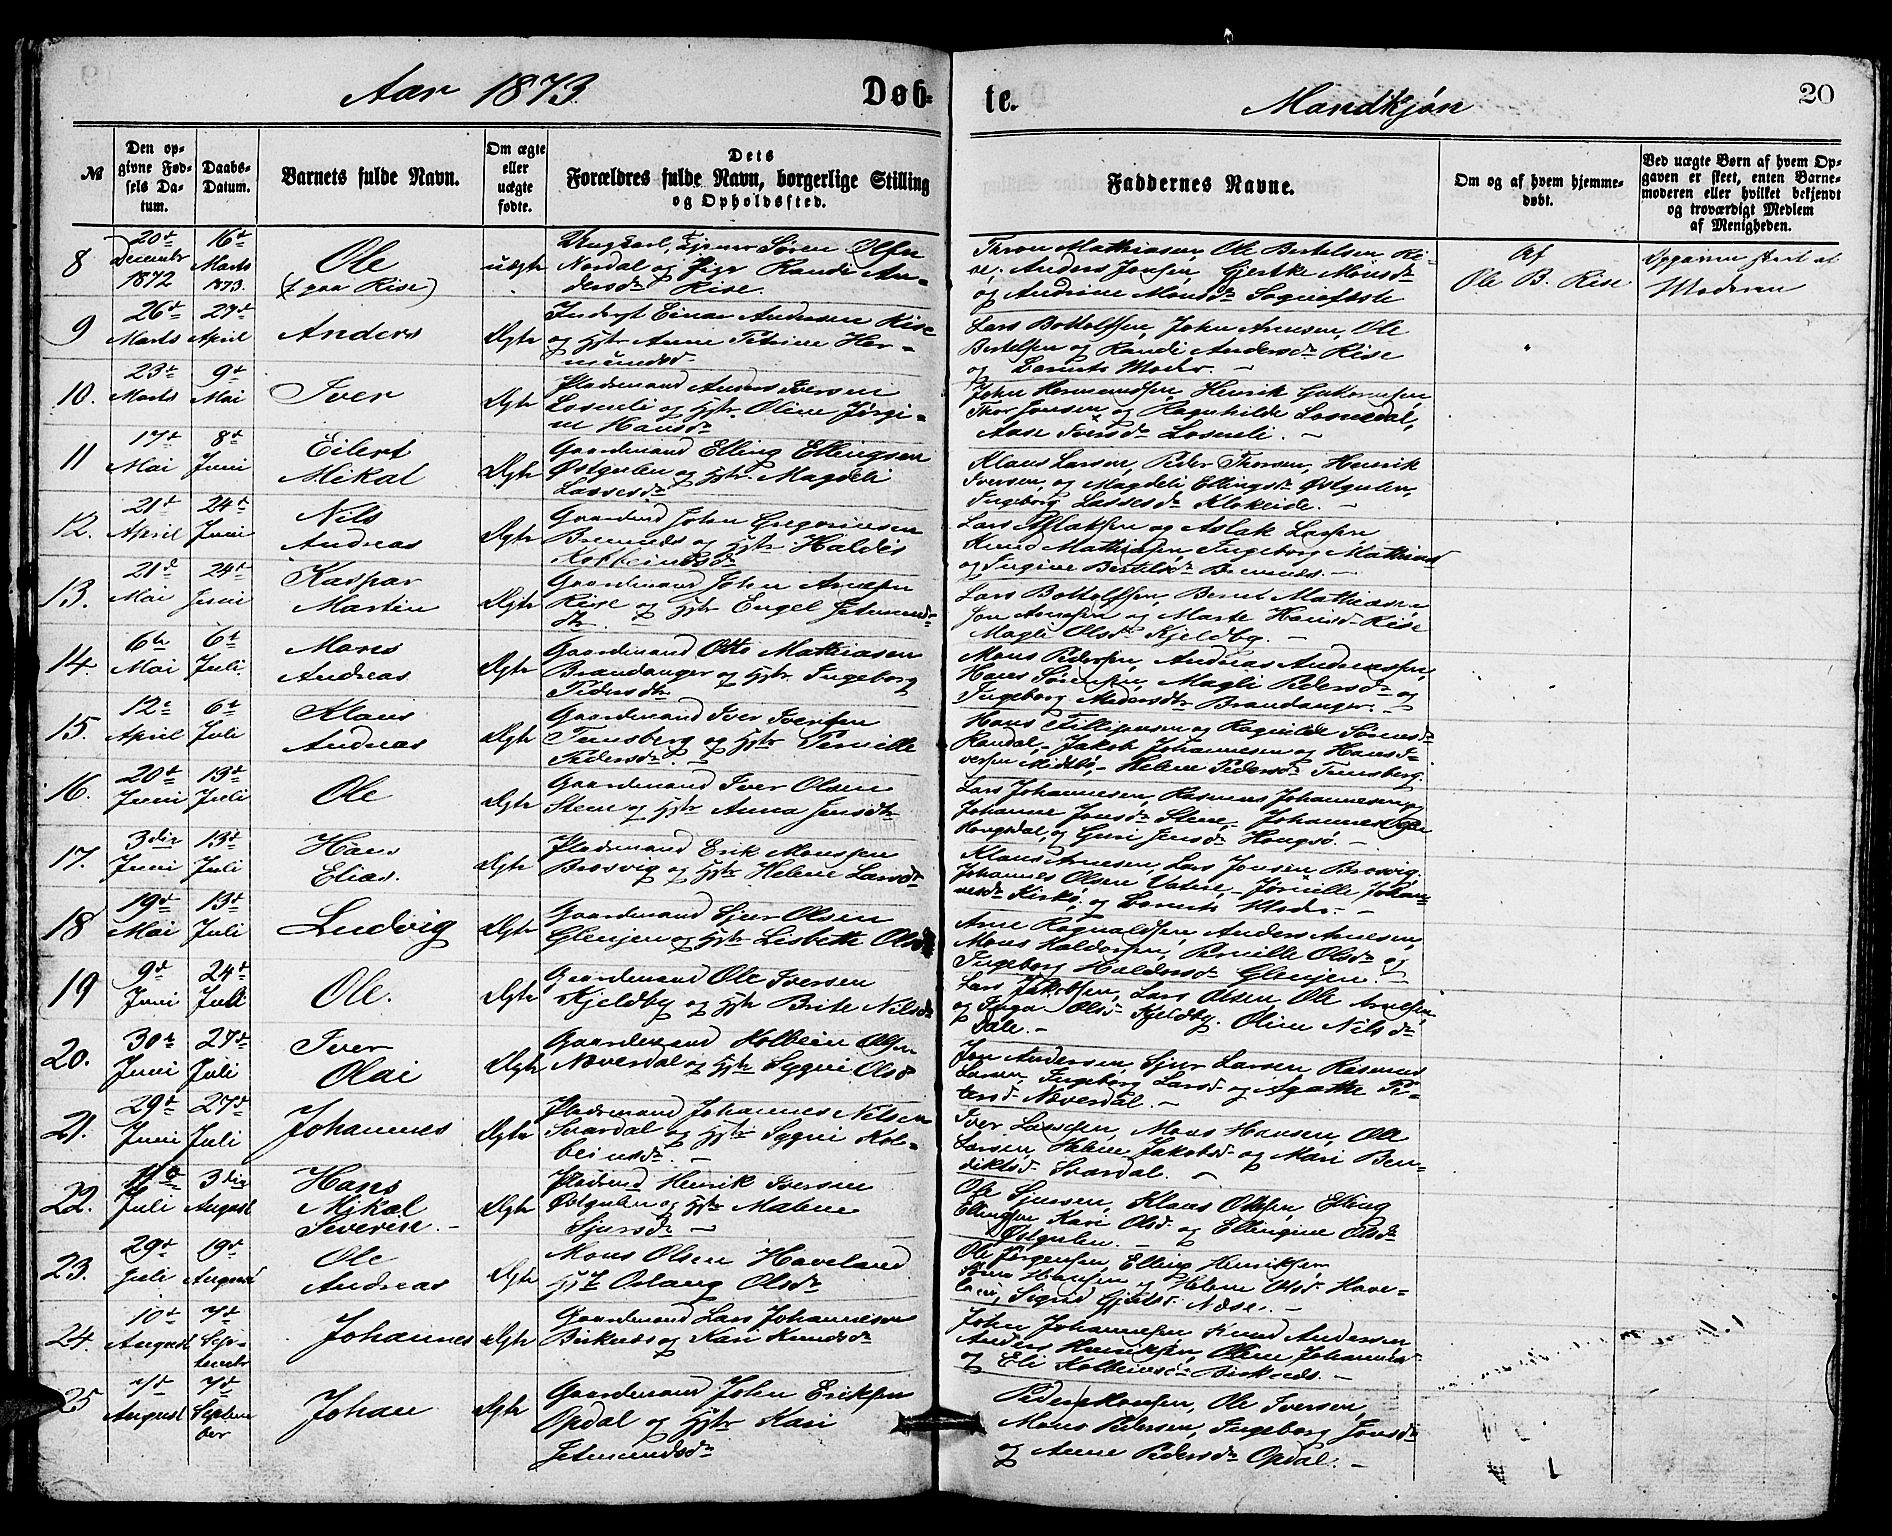 Aar 1873
Døb-
te.
Mandkjøn
20
№
Den op-
givne Fød-
sels Da-
tum.
Daabs-
Datum.
Barnets fulde Navn.
Om ægte
eller
uægte
fødte.
Dets
Forældres fulde Navn, borgerlige Stilling
og Opholdssted.
Faddernes Navne.
Om og af hvem hjemme-
døbt.
Ved uægte Børn af hvem Op-
gaven er skeet, enten Barne-
moderen eller hvilket bekjendt
og troværdigt Medlem
af Menigheden.
8
20de
December
1872
16de
Marts
1873.
Ole
(f. paa Rise)
uægte
Ungkarl, Søren Olsen
Nordal og Pige Randi An-
dersdr Rise.
Thron Mathiasen, Ole Bertelsen Ri-
se, Anders Jonsen, Gjertke Monsdr
og Andrine Monsdr Sognefæste
Af
Ole B. Rise
Opgaven skeet af
Moderen
9
26de
Marts
27de
April
Anders
Ægte
Inderst Einar Andersen Rise
og Hstr Anne Petrine Her-
mundsd.
Lars Bottolfsen, John Arnesen, Ole
Bertelsen og Randi Andersdr Rise
og Barnets Moder. —
10.
23de
Marts
9de
Mai
Iver
Ægte
Pladsmand Anders Iversen
Losneli og Hstr. Oline Jørgi-
ne Hansdr
John Hermundsen, Henrik
Thor Jonsen og Ragnhilde Losnedal,
Aase Iversdr Losneli. —
11
17de
Mai
8de
Juni
Eilert
Mikal
Ægte
Gaardmand Elling Ellingsen
Østgulen og Hstr. Magdeli
Lassesdr
Klaus Larsen, Peder Thorsen, Henrik
Iversen, og Magdeli Ellingsdr Østgulen,
Ingeborg Lassesdr Klokeide. —
12.
21de
April
24de
Juni
Nils
Andreas
Ægte
Gaardmd John Gregoriusen
Bremnes og Hstr Haldis
Kolbeinsdr
Lars Aslaksen og Aslak Larsen
Knud Mathiasen, Ingeborg Mathiasd
og Ingine Bertelsdr Bremnes. —
13.
21de
Mai
24de
Juni
Kaspar
Martin
Ægte
Gaardmand John Arnesen
Rise og Hstr Engel Jetmunds-
dr.
Lars Bottolfsen, Bernt Mathiasen
Jon Arnesen og Marte Hansd Rise
Magli Olsdr Kjeldby. —
14.
6te
Mai
6te
Juli.
Mons
Andreas
Ægte
Gaardmand Otto Mathiasen
Brandanger og Hstr. Ingeborg
Pedersdtr
Mons Pedersen, Andreas Andreassen,
Hans Sørensen, Magli Pedersdr og
Ingeborg Brandanger. —
15.
12te
April
6te
Juli
Klaus
Andreas
Ægte
Gaardmand Iver Iversen
Tunsberg og Hstr Pernille
Pedersdr. —
Hans Fillipusen og Ragnilde Sørensdr
Randal, Jakob Johannesen og Hans I-
versen Midtbø, Helene Pedersdr Tunsberg.
16.
20de
Juni
13de
Juli
Ole
Ægte
Gaardmand Iver Olsen
Stene og Hstr Anna Jensdtr
Lars Johannesen, Rasmus Johannesen og
Johanne Jonsdr Stene, Johannes
Hougsdal, og Guri Jensdr Hougsø. —
17.
3die
Juni
13de
Juli
Hans
Elias.
Ægte
Pladsmand Erik Monssen
Brosvig og Hstr Helene Larsdr
Klaus Arnesen, Lars Jonsen Brosvig,
Johannes Olsen Johan-
nesdr Kirkø, og Barnets Moder. —
18
19de
Mai
13de
Juli
Ludvig
Ægte
Gaardmand Sjur Olsen
Glenjen og Hstr Lisbette Olsdr
Arne Ragnvaldsen, Anders Arnesen,
Mons Haldorsen, Pernille Olsdr og
Ingeborg Haldorsdr Glenjen. —
19
9de
Juni
24de
Juli
Ole.
Ægte
Gaardmand Ole Iversen
Kjeldby og Hstr Brite Nilsdr
Lars Jakobsen, Lars Olsen, Ole Arnesen,
og Inga Olsd Kjeldby. Oline Nilsdr
Dale. —
20.
30te
Juni
27de
Juli
Iver
Olai
Ægte
Gaardmand Kolbein Olsen
Nœverdal og Hstr Sygni Olsd
Jon Andersen, Sjur Larsen, Rasmus
Larsen, Ingeborg Larsd og Agathe Pe-
tersd Nœverdal. —
21.
29de
Juni
27de
Juli
Johannes
Ægte
Pladsmand Johannes Nilsen
Svardal og Hstr Sygni Kol-
beinsd. —
Iver Lassesen, Mons Hansen, Ole
Larsen, Helene Jakobsd og Mari Ben-
diktsd Svardal. —
22.
Juli
3die
August
Hans
Mikal
Severin. —
Ægte
Pladsmd Henrik Iversen
Østgulen og Hstr Malene
Sjursdr —
Ole Sjursen, Klaus Olsen, Elling
Ellingsen Kari Olsd. og Ellingine Olsdr
Østgulen. —
23.
29de
Juli
19de
August
Ole
Andreas
Ægte
Mons Olsen Haveland
Hstr Oslaug Olsdr
Ole Jørgensen, Elling Henriksen,
Hansen og Helene Olsd Have-
land, Sigrid Næse. —
24.
10de
August
7de
Sep-
tember
Johannes
Ægte
Gaardmand Lars Johannesen
Birknes og Kari Knudsdr
John Johannesen Knud Andersen
Anders Henriksen, Oline Johannesd
og Eli Kolbeinsdr Birknes. —
25
7de
August
7de
Septem-
ber
Johan
Ægte
Gaardmand John Eriksen
Opdal og Hstr Kari
Jetmundsdr
Peder Monsen, Ole Iversen,
Mons Pedersen, Ingeborg Jonsdr
og Anne Pedersdr Opdal. —